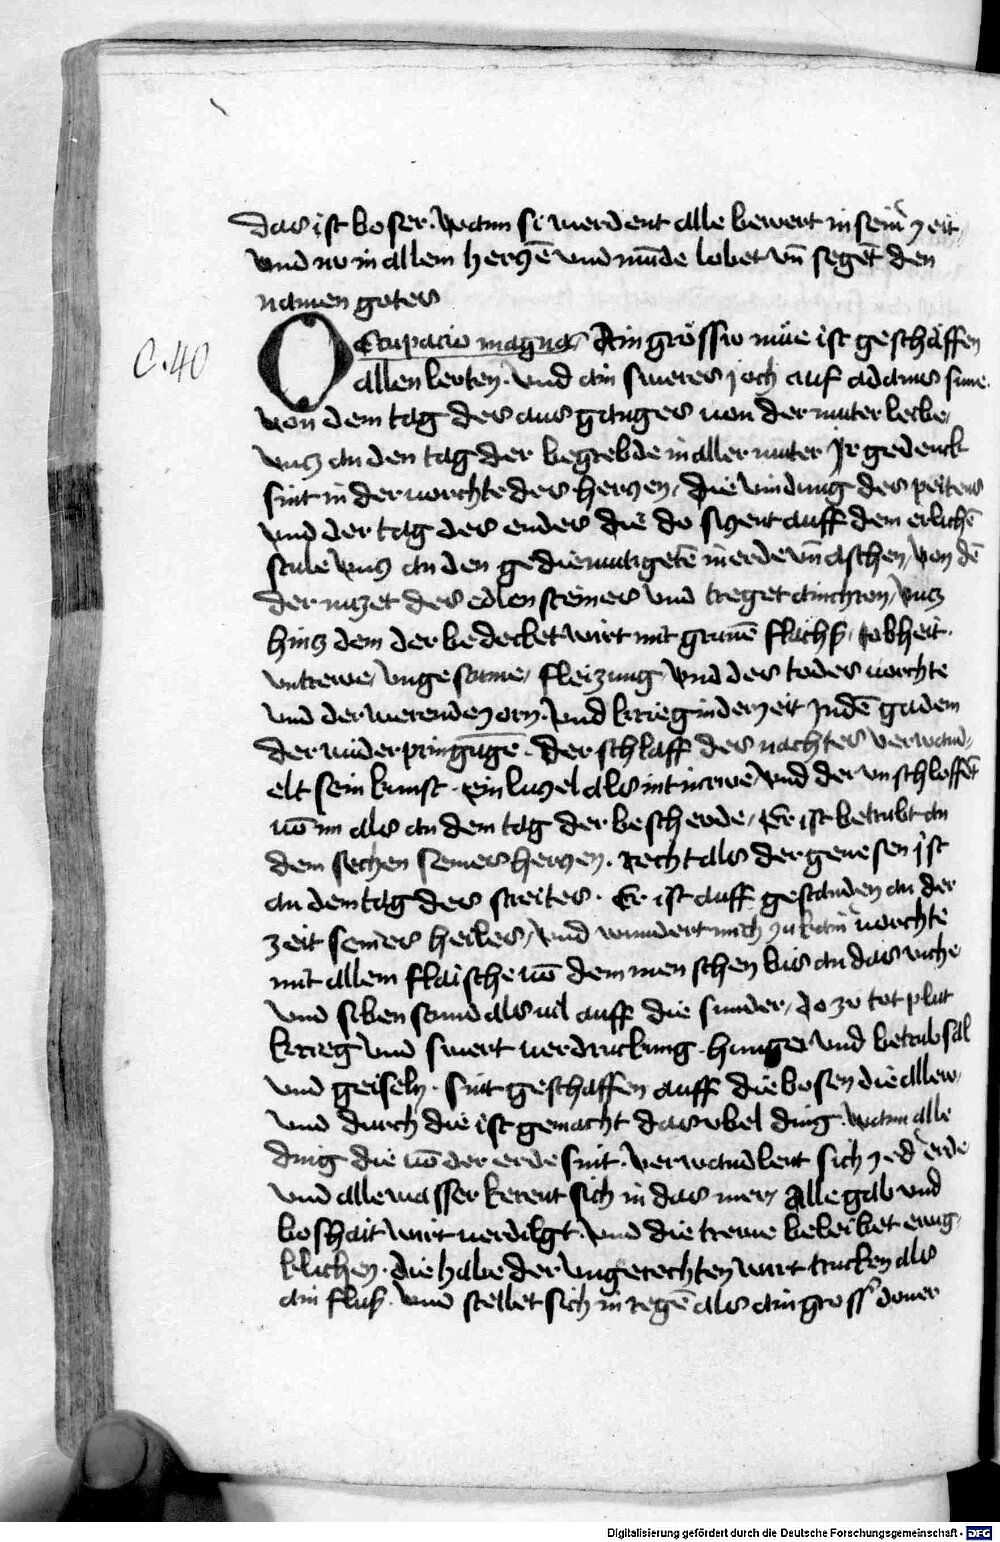 das ist boser. wann si werdent alle bewert in seiner zeit
vnd nv in allem herczē vnd mūde lobet vn̄ segēt den
namen gotes
C.40
OCcupacio magna Ain grössiv müe ist geschaffen
allen levten. vnd ain sweres joch auf adams sune.
von dem tag des ausganges von der muter leibe
vncz an den tag der begrebde in aller muter Jr gedenck
sint in der vorchte des herczen, die vindung des peitens
vnd der tag des endes die do siczent auff dem erlichē
stule vncz an den gediemutigetē in erde vn̄ aschen, von dē
der nuzet des edlen steines vnd treget ain chron, vncz
hincz dem der bedecket wirt mit grauē flachs, tobheit.
vntrewe, vngestüme, fleizung vnd des todes vorchte
vnd der werenden zorn. vnd krieg in der zeit Jn dē gadem
der niderpringūgē. der schlaff des nachtes verwand
elt sein kunst. ein luczel als in in rwē vnd der vnschloffēt
vō im als an dem tag der bescherde, Er ist betrubt an
dem sechen seines herczen. recht als der genesen ist
an dem tag des streites. Er ist auff gestanden an der
zeit seines heiles, vnd wundert mich zu kainer vorchte
mit allem flaische vō dem menschen bis an das viche
vnd siben stund als vil auff die sunder, do zv tot plut
krieg vnd swert verdruckung. hunger vnd betrubsal
vnd geiseln. sint geschaffen auff die bosen die allew
vnd durch die ist gemacht das vbel ding. wann alle
ding die vō der erde sint. verwandlent sich zed erde
vnd alle wasser kerent sich in das mer, Alle gab vnd
boshait wirt verdilgt. vnd die trewe beleibet ewig
klichen. die habe der vngerechten wirt trucken als
ain flus. vnd stellet sich in regē als ain gross doner
Digitalisierung gefördert durch die Deutsche Forschungsgemeinschaft - DFG